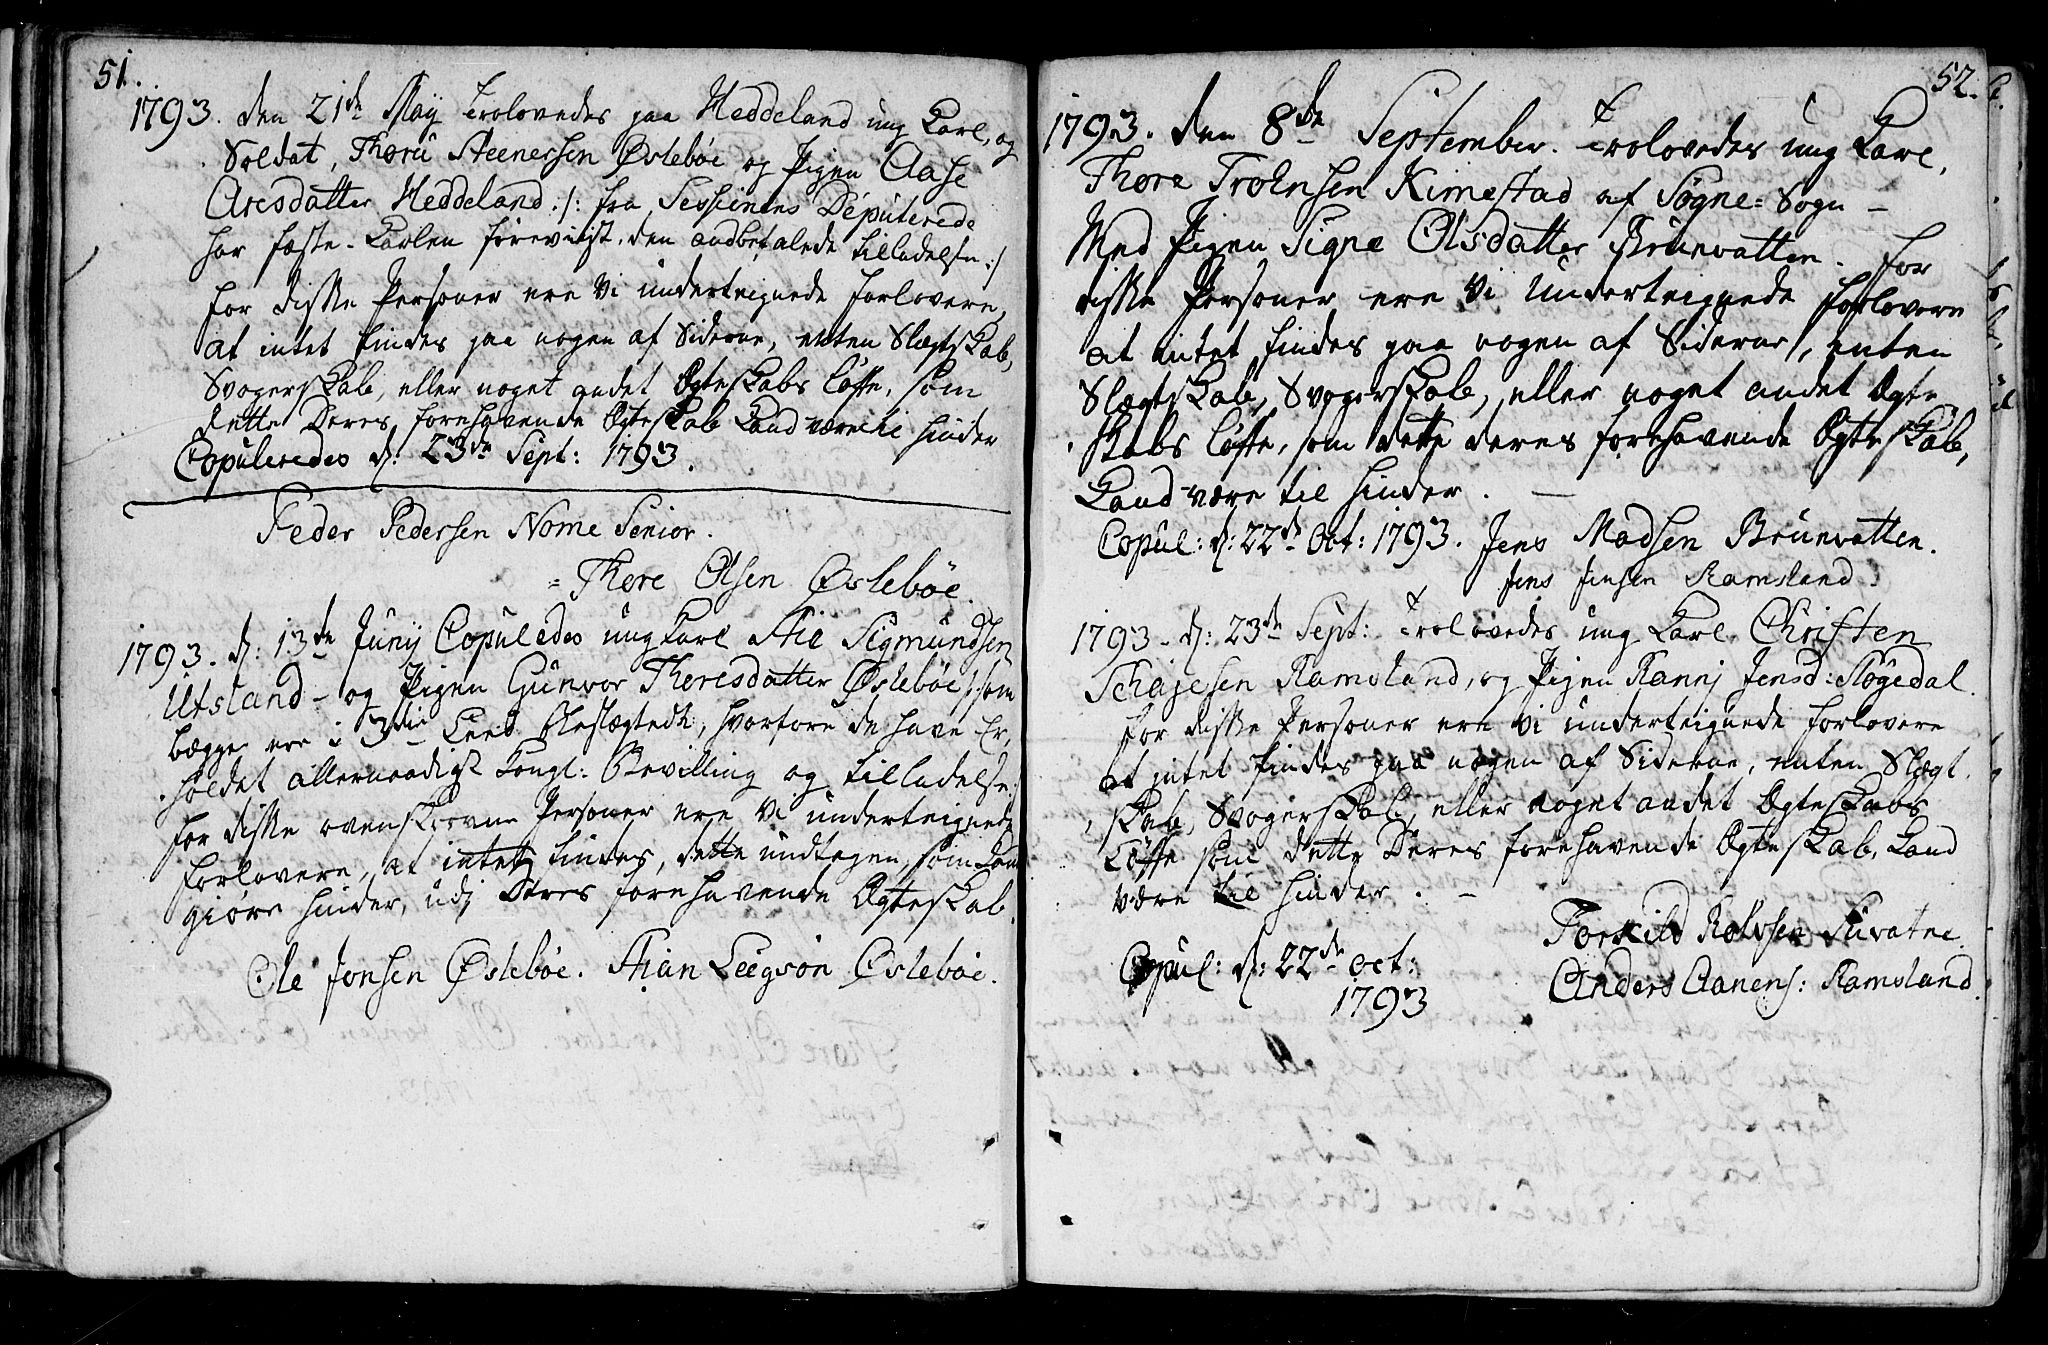 51.
1793. den 21de Maij trolovedes paa Heddeland ung Karl, og
Soldat, Thoru Steenersen Øslebøe og Pigen Aase
Aresdatter Heddeland :/: fra Sessionens Deputerede
har fæste-Karlen foreviist, den andbefalede tilladelse :/
for disse Personer ere vi undertegnede forlovere,
at intet findes paa nogen af Siderne, enten Slægtskab,
Svogerskab, eller noget andet Ægteskabs løfte, som
dette Deres forehavende Ægteskab kand være til hinder
Copuleredes d: 23de Sept: 1793.
Peder Pedersen Nome Senior.
Thore Olsen Øslebøe.
1793. d: 13de Junij Copuledes ung Karl Stie Sigmundsen
Utsland - og Pigen Gunvor Thoresdatter Øslebøe, som
begge ere i 3die Leed Beslægtede, hvorfore de have Er,
holdet allernaadigst Kongl: Bevilling og tilladelse:
for disse ovenskrevne Personer ere Vi undertegnede
forlovere, at intet findes, dette undtagen, som kand
giøre hinder, udj Deres forehavende Ægteskab.
Ole Jonsen Øslebøe. Stian Leegson Øslebøe.
52.
1793. den 8de September. trolovedes ung Karl,
Thore Trolnsen Kimestad af Søgne-Sogn -
Med Pigen Signe Olsdatter Brunvatten. for
disse Personer ere Vi Undertegnede forlovere
at intet findes paa nogen af Siderne, enten
Slægtskab, Svogerskab, eller noget andet Ægte
skabs løfte, som dette deres forehavende Ægteskab,
kand være til hinder. -
Copul: d: 22de Oct: 1793. Jens Madsen Brunvatten.
Jens Jensen Ramsland.
1793. d: 23de Sept: trolovedes ung Karl Christen
Ramsland, og Pigen Rannj Jensd: Støgedal.
for disse Personer ere vi undertegnede forlovere
at intet findes paa nogen af Siderne, enten Slægt,
skab, Svogerskab, eller noget andet Ægteskabs
Løfte som dette Deres forehavende Ægteskab, kand
være til hinder. -
Torkild Rolvsen
Copul: d: 22de oct: Anders Aanens: Ramsland.
1793